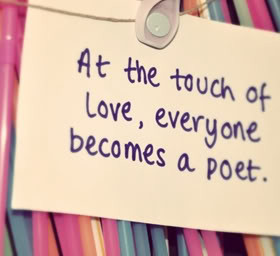 At the touch of
love, everyone
becomes a poet.